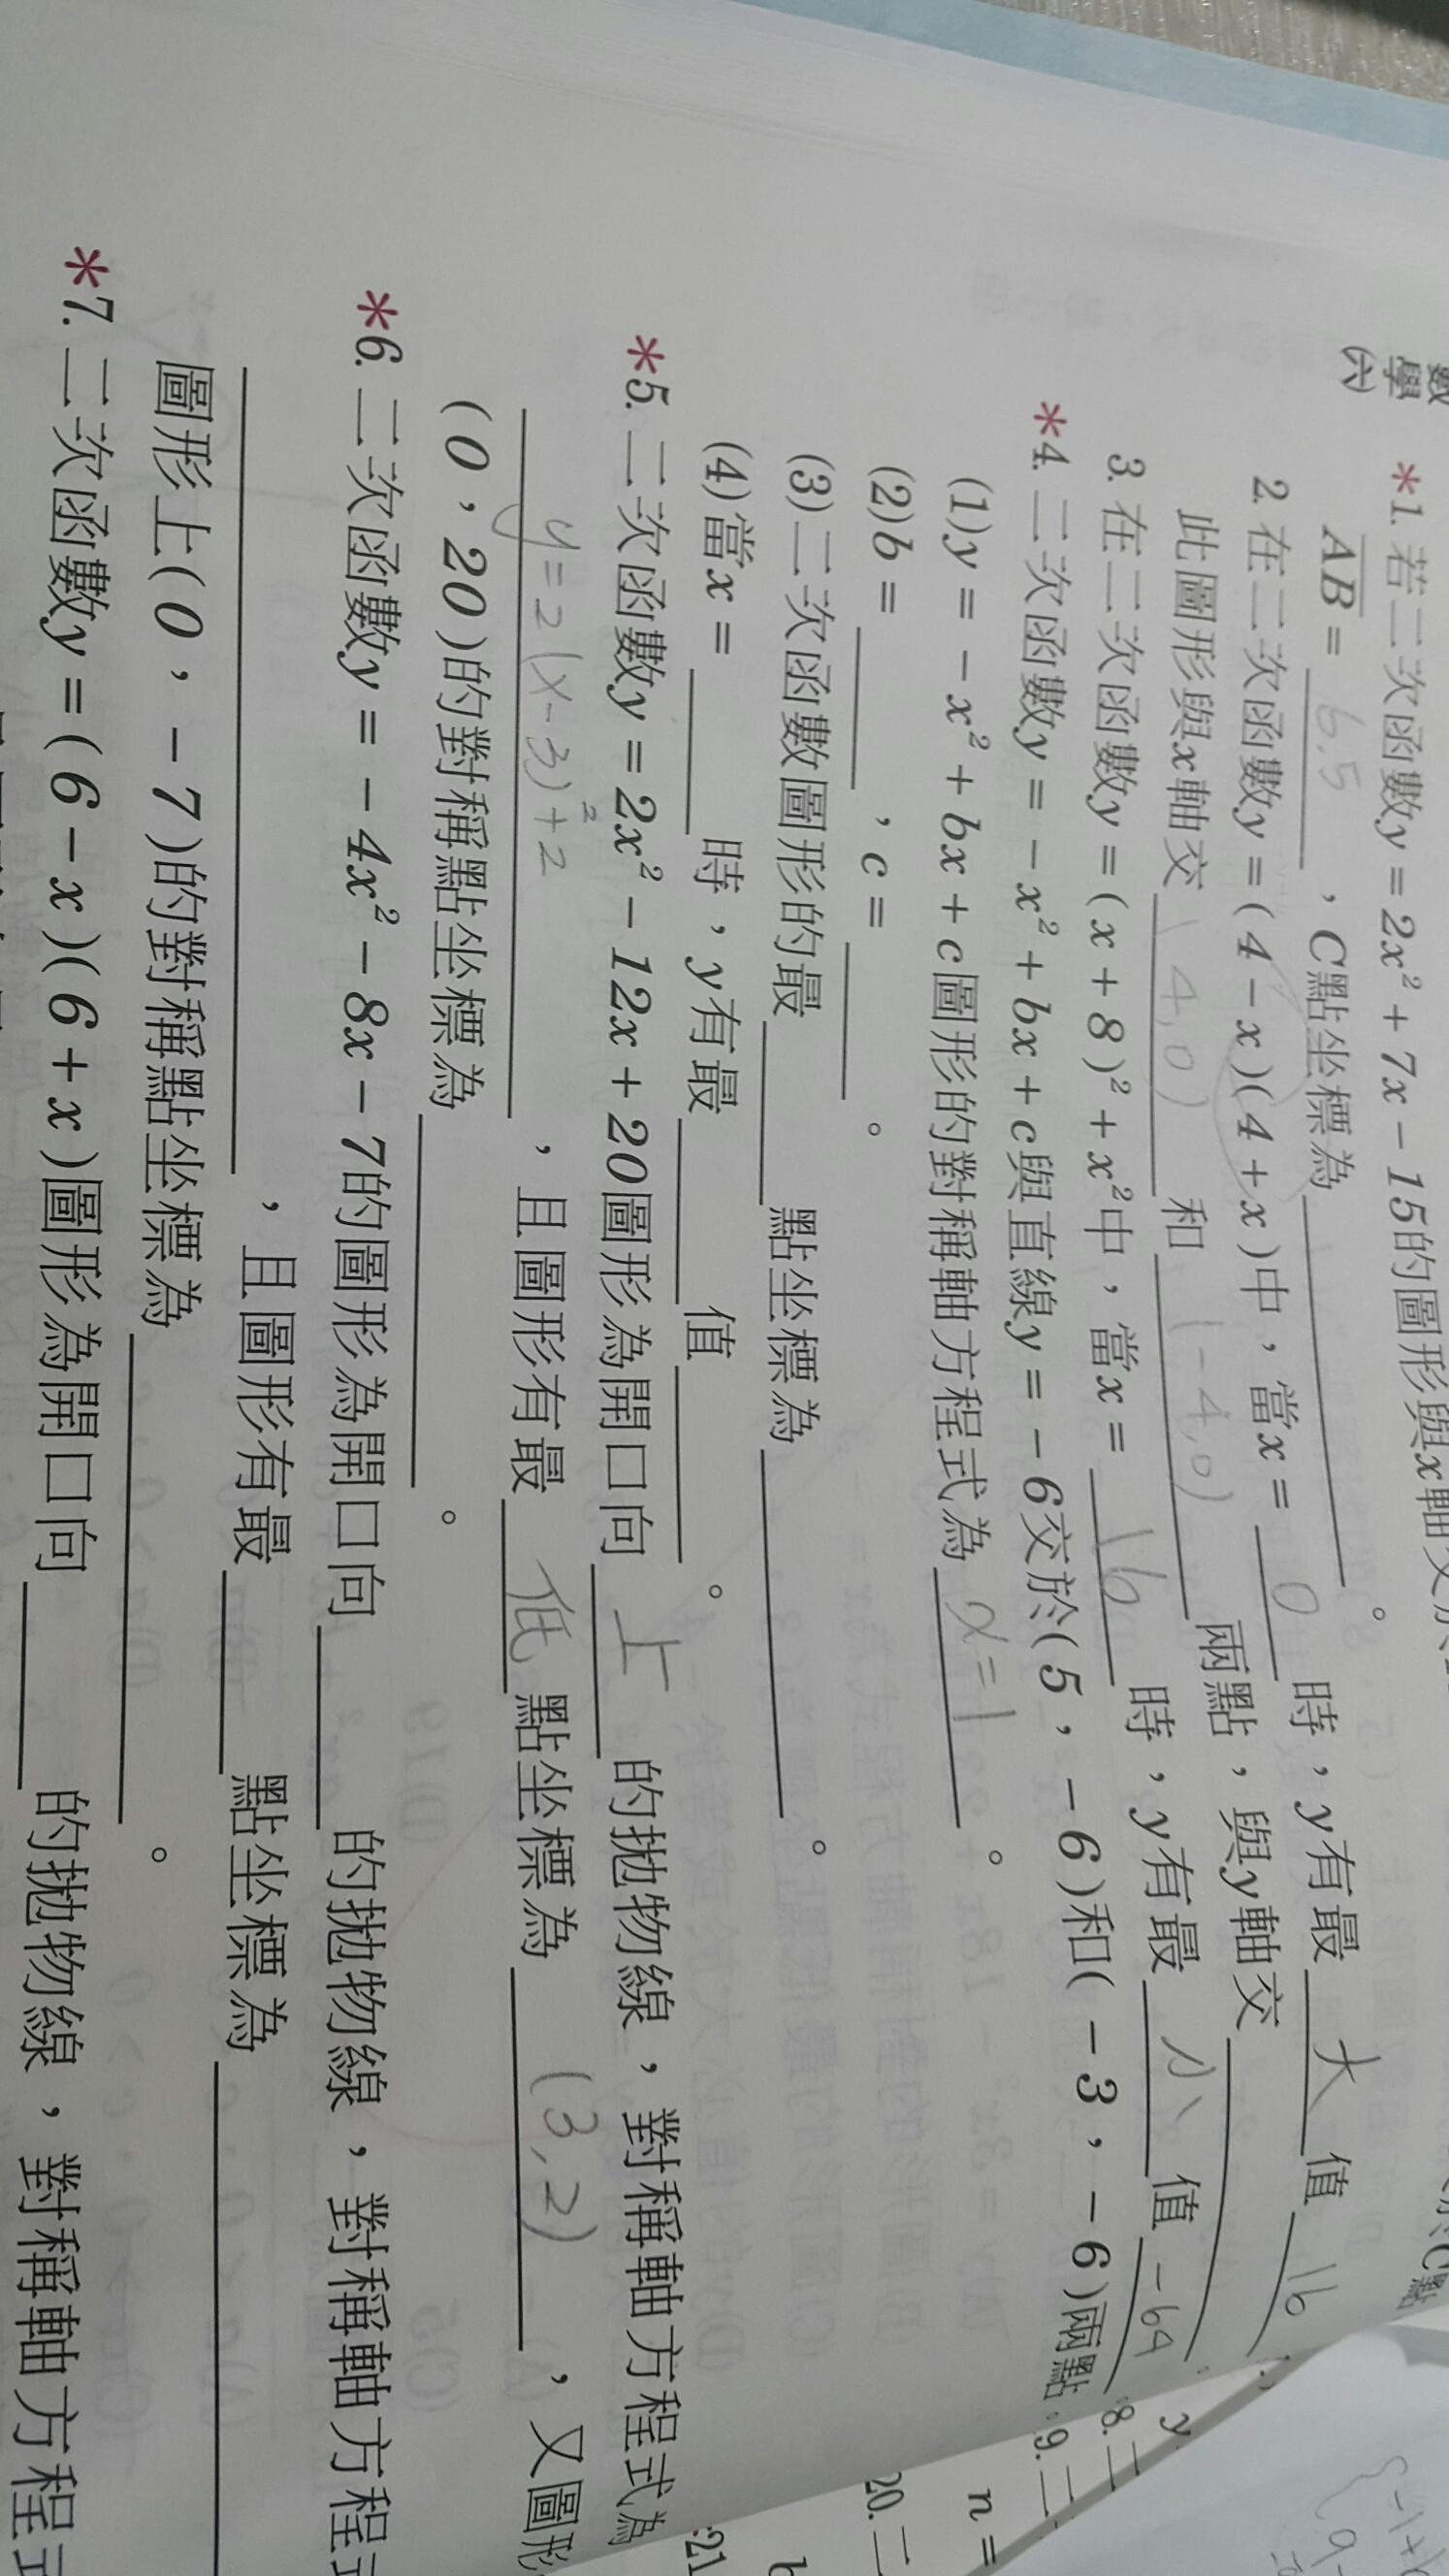 數學(六)
*1. 若二次函數y = 2x² + 7x - 15的圖形與x軸交於
AB = 6.5 , C點坐標為______。
2. 在二次函數y = (4 - x)(4 + x)中,當x = 0 時,y有最 大 值 16
此圖形與x軸交 (4,0) 和 (-4,0) 兩點,與y軸交
3. 在二次函數y = (x + 8)² + x²中,當x = 16 時,y有最 小 值 -64
*4. 二次函數y = - x² + bx + c與直線y = - 6交於(5,- 6)和(- 3,- 6)兩點
(1)y = - x² + bx + c圖形的對稱軸方程式為 x=1 。
(2)b = ______,c = ______。
(3)二次函數圖形的最______點坐標為______。
(4)當x = ______時,y有最______值______。
*5. 二次函數y = 2x² - 12x + 20圖形為開口向 上 的拋物線,對稱軸方程式為
y=2(x-3)²+2 ,且圖形有最 低 點坐標為 (3,2) ,又圖形
(0,20)的對稱點坐標為______。
*6. 二次函數y = - 4x² - 8x - 7的圖形為開口向______的拋物線,對稱軸方程
______,且圖形有最______點坐標為______
圖形上(0,- 7)的對稱點坐標為______。
*7. 二次函數y = (6 - x)(6 + x)圖形為開口向______的拋物線,對稱軸方程
y
8. 二
9. 二
n =
20. 二
21
b